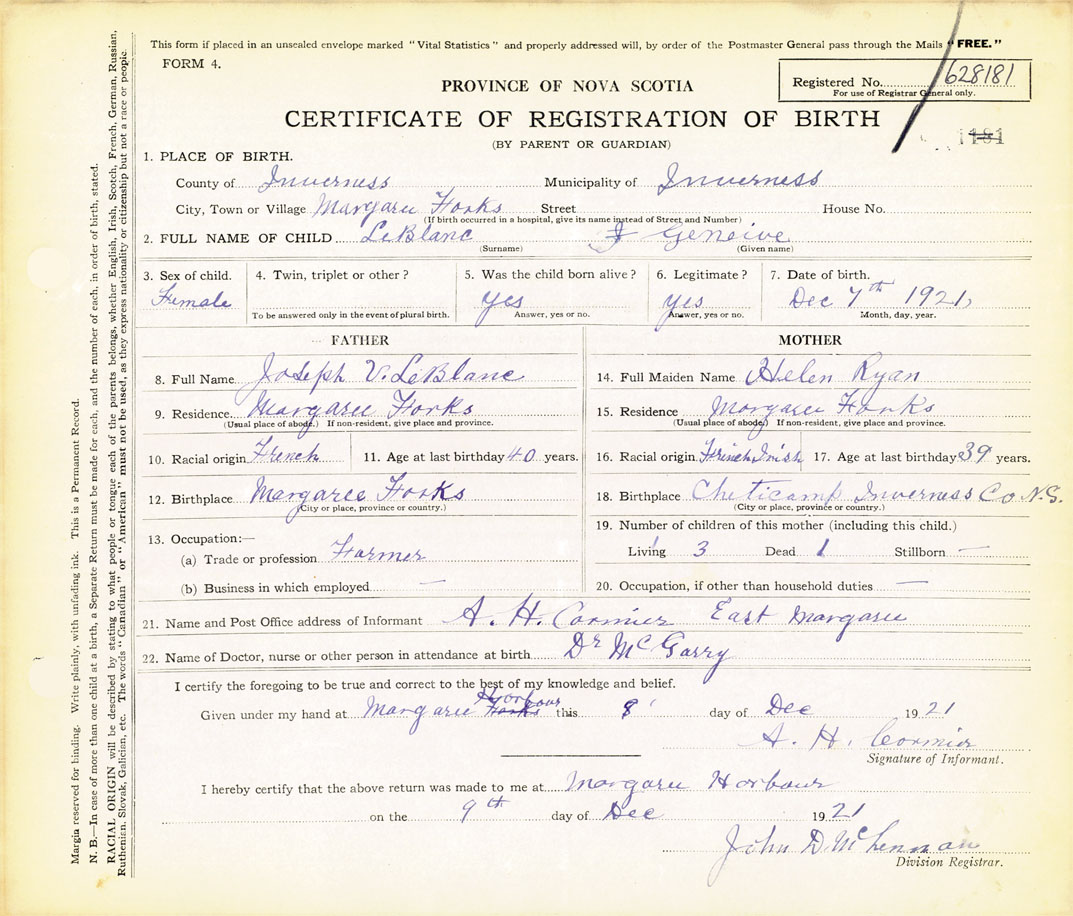 This form if placed in an unsealed envelope marked "Vital Statistics" and properly addressed will, by order of the Postmaster General pass through the Mails "FREE."
FORM 4.
Registered No. 628181
For use of Registrar General only.
PROVINCE OF NOVA SCOTIA
CERTIFICATE OF REGISTRATION OF BIRTH
1181
(BY PARENT OR GUARDIAN)
1. PLACE OF BIRTH.
County of Inverness Municipality of Inverness
City, Town or Village Margaree Forks Street House No.
(If birth occurred in a hospital, give its name instead of Street and Number)
2. FULL NAME OF CHILD LeBlanc Geneive
(Surname) (Given name)
3. Sex of child. 4. Twin, triplet or other? 5. Was the child born alive? 6. Legitimate? 7. Date of birth.
Female yes yes Dec 7th 1921,
To be answered only in the event of plural birth. Answer, yes or no. Answer, yes or no. Month, day, year.
FATHER
8. Full Name Joseph V. LeBlanc
9. Residence Margaree Forks
(Usual place of abode.) If non-resident, give place and province.
10. Racial origin French 11. Age at last birthday 40 years.
12. Birthplace Margaree Forks
(City or place, province or country.)
13. Occupation:—
(a) Trade or profession Farmer
(b) Business in which employed —
MOTHER
14. Full Maiden Name Helen Ryan
15. Residence Margaree Forks
(Usual place of abode.) If non-resident, give place and province.
16. Racial origin French Irish 17. Age at last birthday 39 years.
18. Birthplace Cheticamp Inverness Co N.S.
(City or place, province or country.)
19. Number of children of this mother (including this child.)
Living 3 Dead 1 Stillborn —
20. Occupation, if other than household duties —
21. Name and Post Office address of Informant A. H. Cormier East Margaree
22. Name of Doctor, nurse or other person in attendance at birth Dr McGarry
I certify the foregoing to be true and correct to the best of my knowledge and belief.
Harbour
Given under my hand at Margaree Forks this 8 day of Dec 1921
A. H. Cormier
Signature of Informant.
I hereby certify that the above return was made to me at Margaree Harbour
on the 9th day of Dec 1921
John D McLennan
Division Registrar.
Margin reserved for binding. Write plainly, with unfading ink. This is a Permanent Record.
N. B.—In case of more than one child at a birth, a Separate Return must be made for each, and the number of each, in order of birth, stated.
RACIAL ORIGIN will be described by stating to what people or tongue each of the parents belongs, whether English, Irish, Scotch, French, German, Russian,
Ruthenian, Slovak, Galician, etc. The words "Canadian" or "American" must not be used, as they express nationality or citizenship but not a race or people.